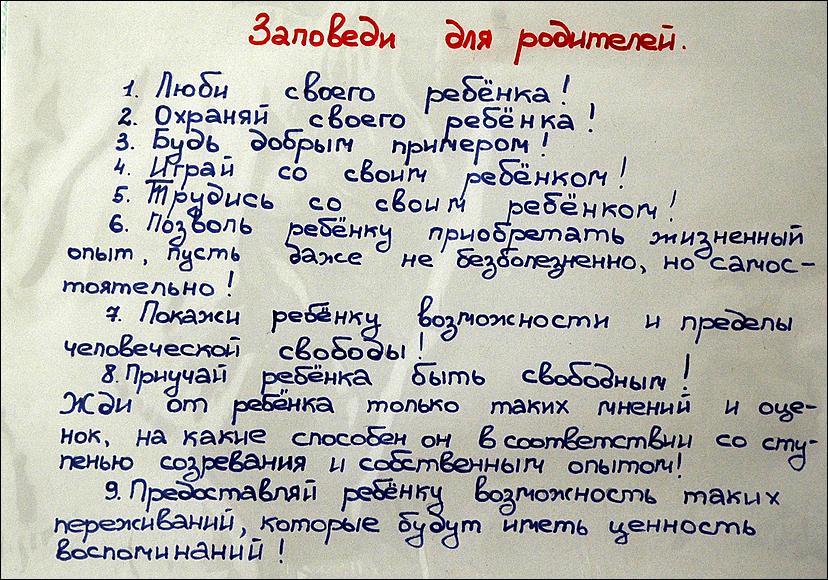 Заповеди для родителей.
1. Люби своего ребёнка!
2. Охраняй своего ребёнка!
3. Будь добрым примером!
4. Играй со своим ребёнком!
5. Трудись со своим ребёнком!
6. Позволь ребёнку приобретать жизненный
опыт, пусть даже не безболезненно, но самос-
тоятельно!
7. Покажи ребёнку возможности и пределы
человеческой свободы!
8. Приучай ребёнка быть свободным!
Жди от ребёнка только таких мнений и оце-
нок, на какие способен он в соответствии со сту-
пенью созревания и собственным опытом!
9. Предоставляй ребёнку возможность таких
переживаний, которые будут иметь ценность
воспоминаний!